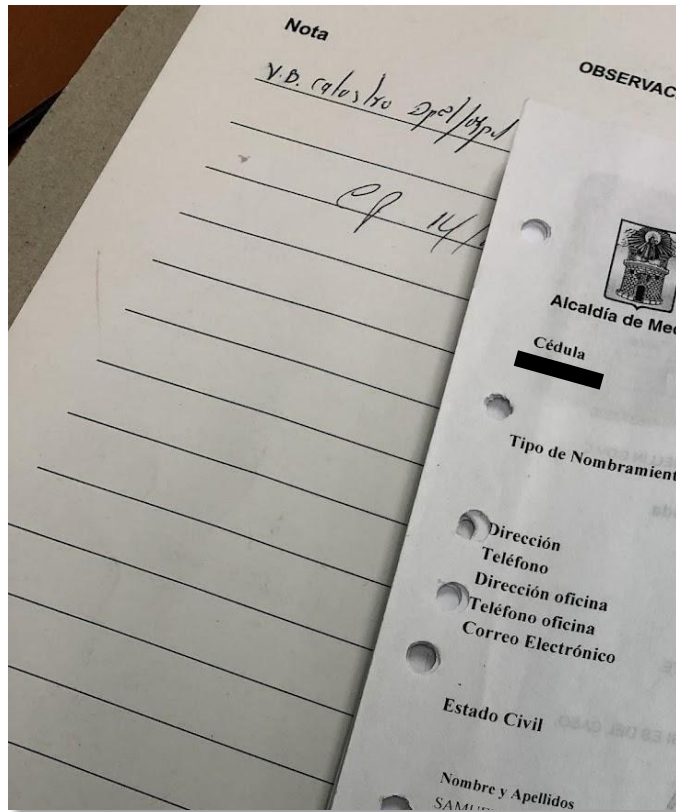 Nota
OBSERVAC
V.B. Catastro Dptal
14/
Alcaldía de Med
Cédula
Tipo de Nombramient
Dirección
Teléfono
Dirección oficina
Teléfono oficina
Correo Electrónico
Estado Civil
Nombre y Apellidos
SAMUE